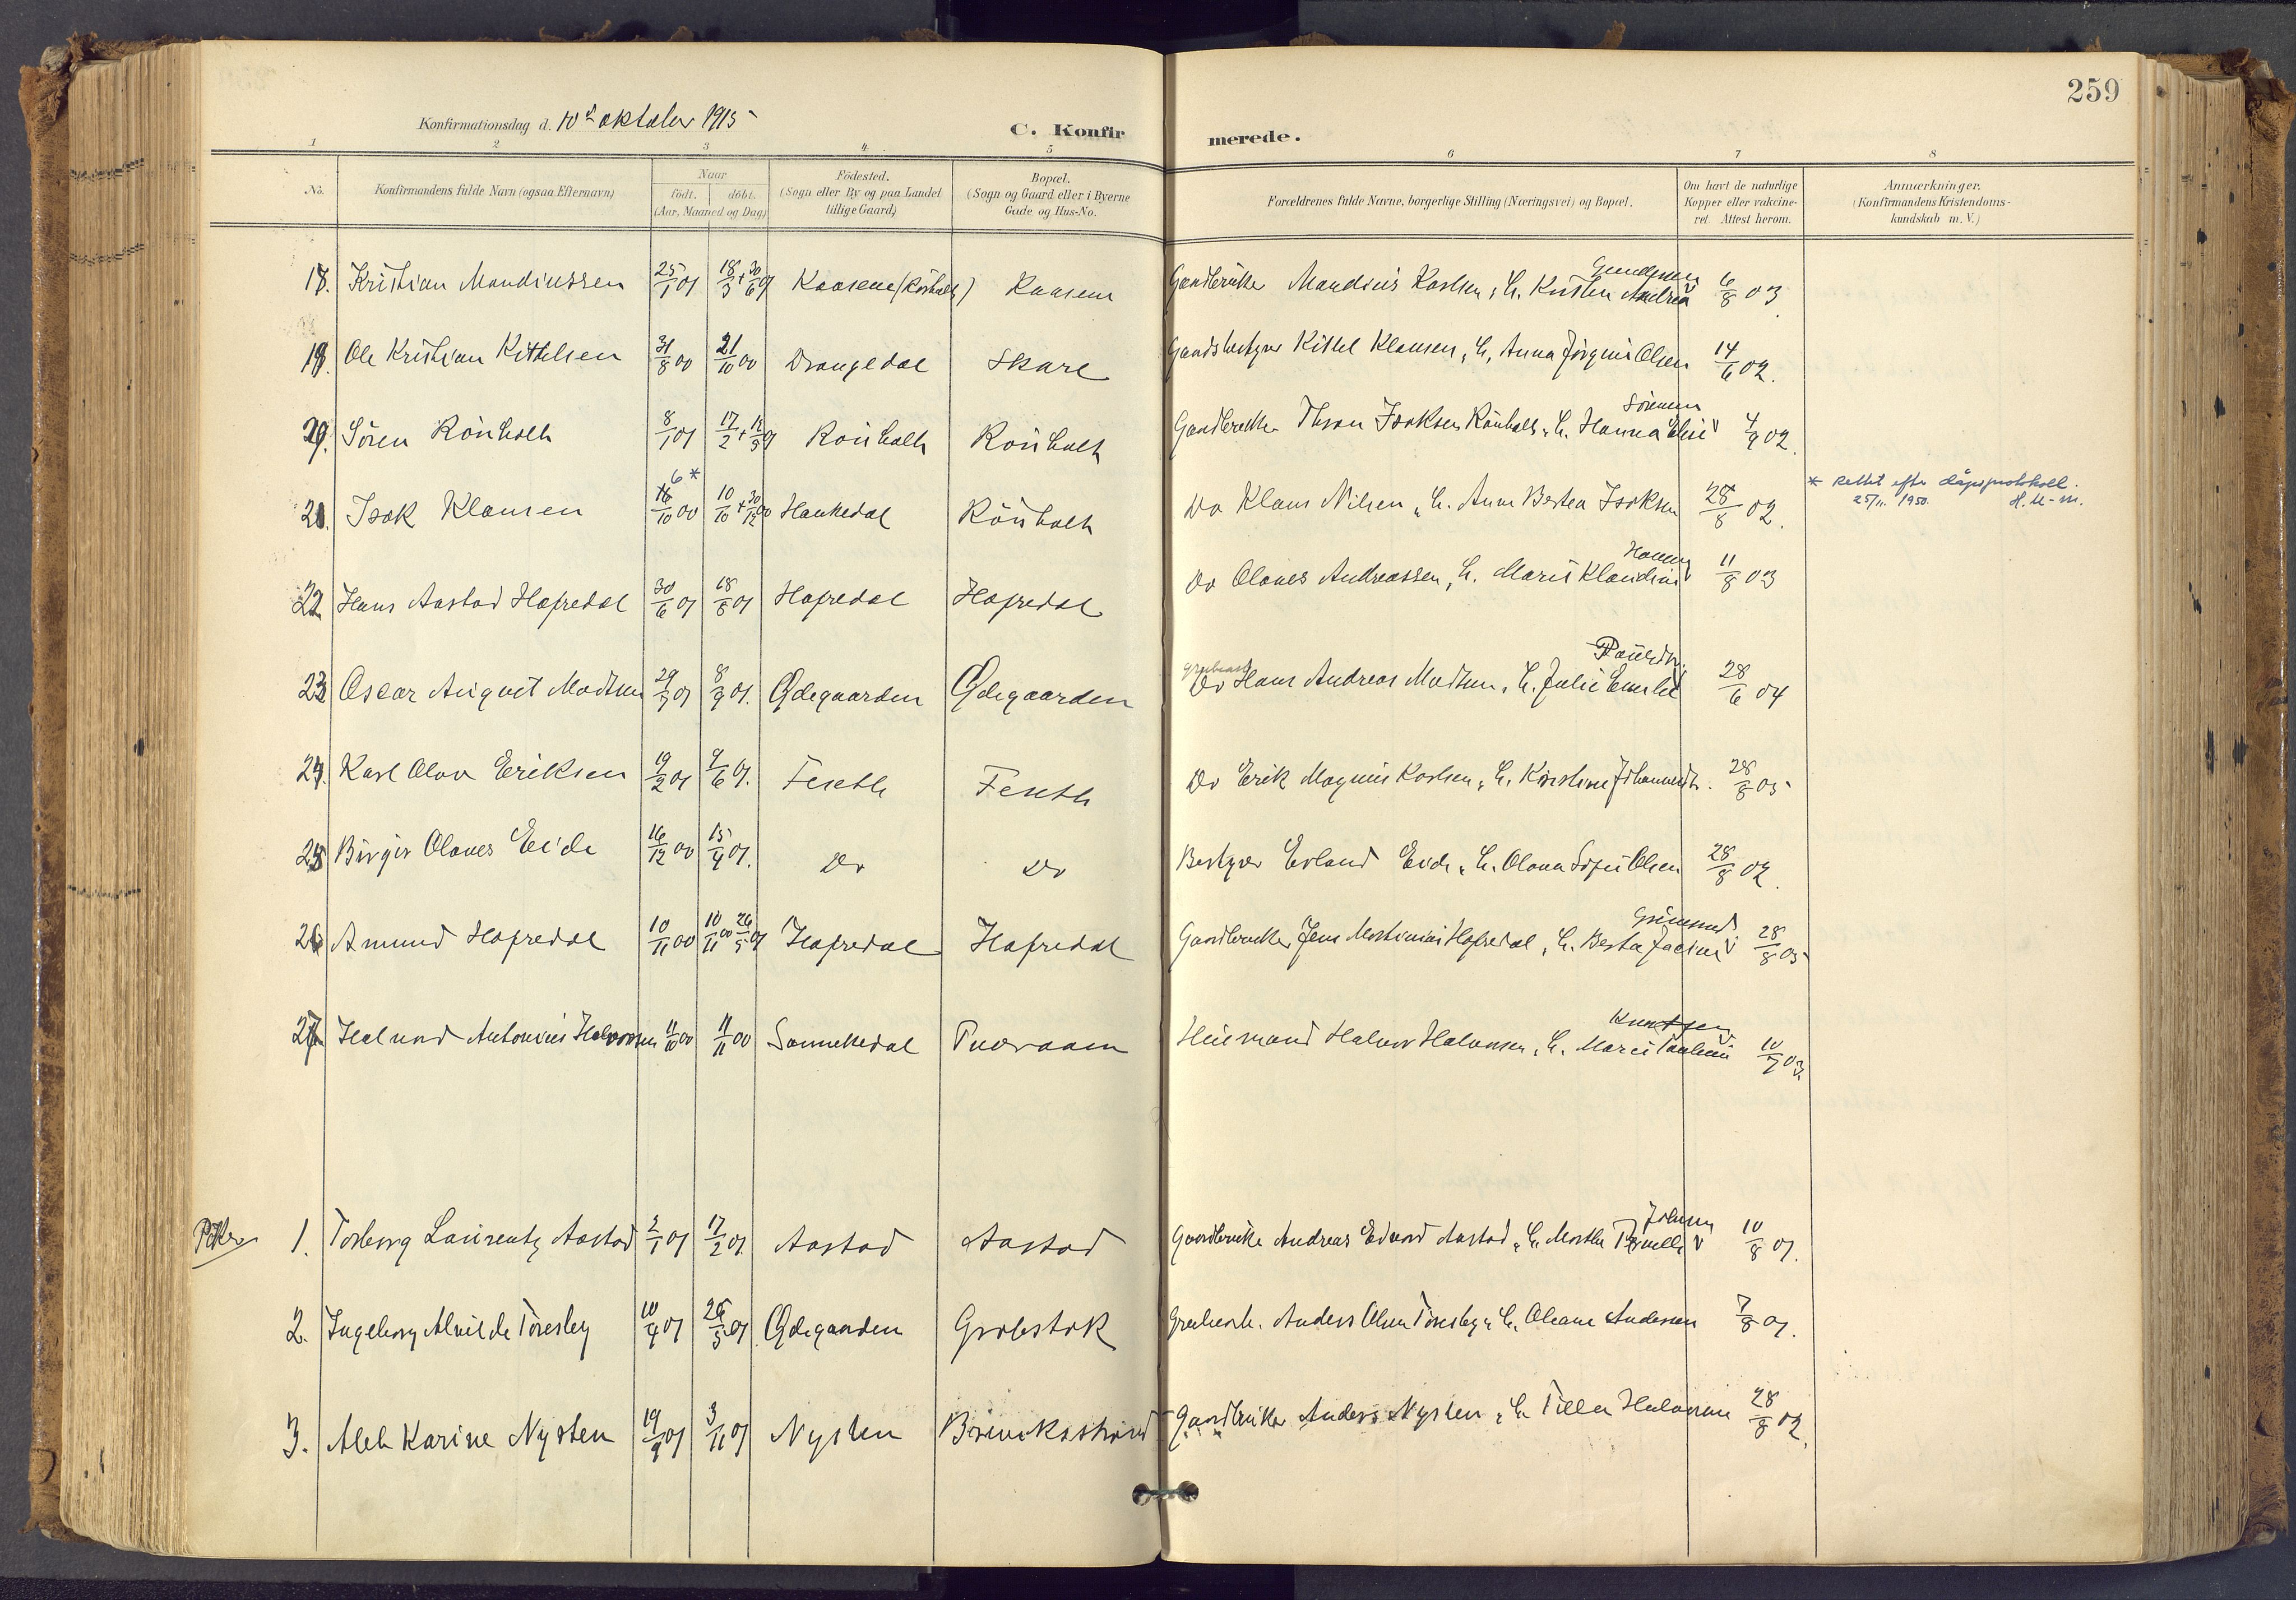 259
Konfirmationsdag d. 10de oktober 1915
C. Konfirmerede.
1 2 3 4 5 6 7 8
No. Konfirmandens fulde Navn (ogsaa Efternavn) Naar født. døbt. (Aar, Maaned og Dag) Födested. (Sogn eller By og paa Landet tillige Gaard) Bopæl. (Sogn og Gaard eller i Byerne Gade og Hus-No. Forældrenes fulde Navne, borgerlige Stilling (Næringsvei) og Bopæl. Om havt de naturlige Kopper eller vakcineret. Attest herom. Anmærkninger. (Konfirmandens Kristendomskundskab m. V.)
Kristian Mandiussen 25/1 01 18/3 + 30/6 01 Kaasene Kaasene Gaardbruker Mandius Karlsen, H. Kirsten Andrea Gundersen 6/8 03
Ole Kristian Kittelsen 31/8 00 21/10 00 Drangedal Skare Gaardsbestyrer Kittel Klausen, H. Anna Jörgine Olsen 14/6 02.
Sören Rönholt 8/1 01 17/2 + 12/5 01 Rönholt Rönholt Gaardbruker Thron Isaksen Rönholt, H. Hanna Elise Sörensen 4/9 02
21. Isak Klausen 16/10 00 6* 10/10 + 30/12 00 Hankedal Rönholt Do Klaus Nilsen, H. Anne Bertea Isaksen 28/8 02. * Rettet efter dåpsprotokoll. 25/11. 1950. H. U-m.
22 Hans Aastad Hafredal 30/6 01 18/8 01 Hafredal Hafredal Do Olaves Andreassen, H. Marie Klaudine Hansen 11/8 03
23 Oscar August Madsen 29/3 01 8/9 01. Ødegaarden Ødegaarden Do Hans Andreas Madsen, H. Julie Emelie 28/6 04
24. Karl Olav Eriksen 19/2 01 9/6 01. Feseth Feseth Do Erik Magnus Karlsen, H. Kirstine Johannesd. 28/8 05
25 Birger Olaves Eide 16/12 00 15/4 01. Do Do Bestyrer Erland Eide, H. Olava Sofie Olsen 28/8 02.
26 Amund Hafredal 10/11 00 10/11 00 26/5 01 Hafredal Hafredal Gaardbruker Jens Martinius Hafredal, H. Berta Jacine Grimsrud 28/8 05
27 Halvard Antonius Halvorsen 11/10 00 11/11 00 Sannekedal Tueraaen Husmand Halvor Halvorsen, H. Marie Pauline Knutsen 10/7 03.
Piker
1. Torborg Laurentze Aastad 2/1 01 17/2 01. Aastad Aastad Gaardbruker Andreas Edvard Aastad, H. Marthe Pernelle Johnsen 10/8 01.
2. Ingeborg Alvilde Toresby 10/4 01 26/5 01 Ødegaarden Grobstok Grubearb. Anders Olsen Toresby, H. Oleane Andersen 7/8 01.
3. Aleth Karine Nysten 19/9 01 3/11 01 Nysten Gaardbruker Anders Nysten, H. Tilla Halvorsen 28/8 02.